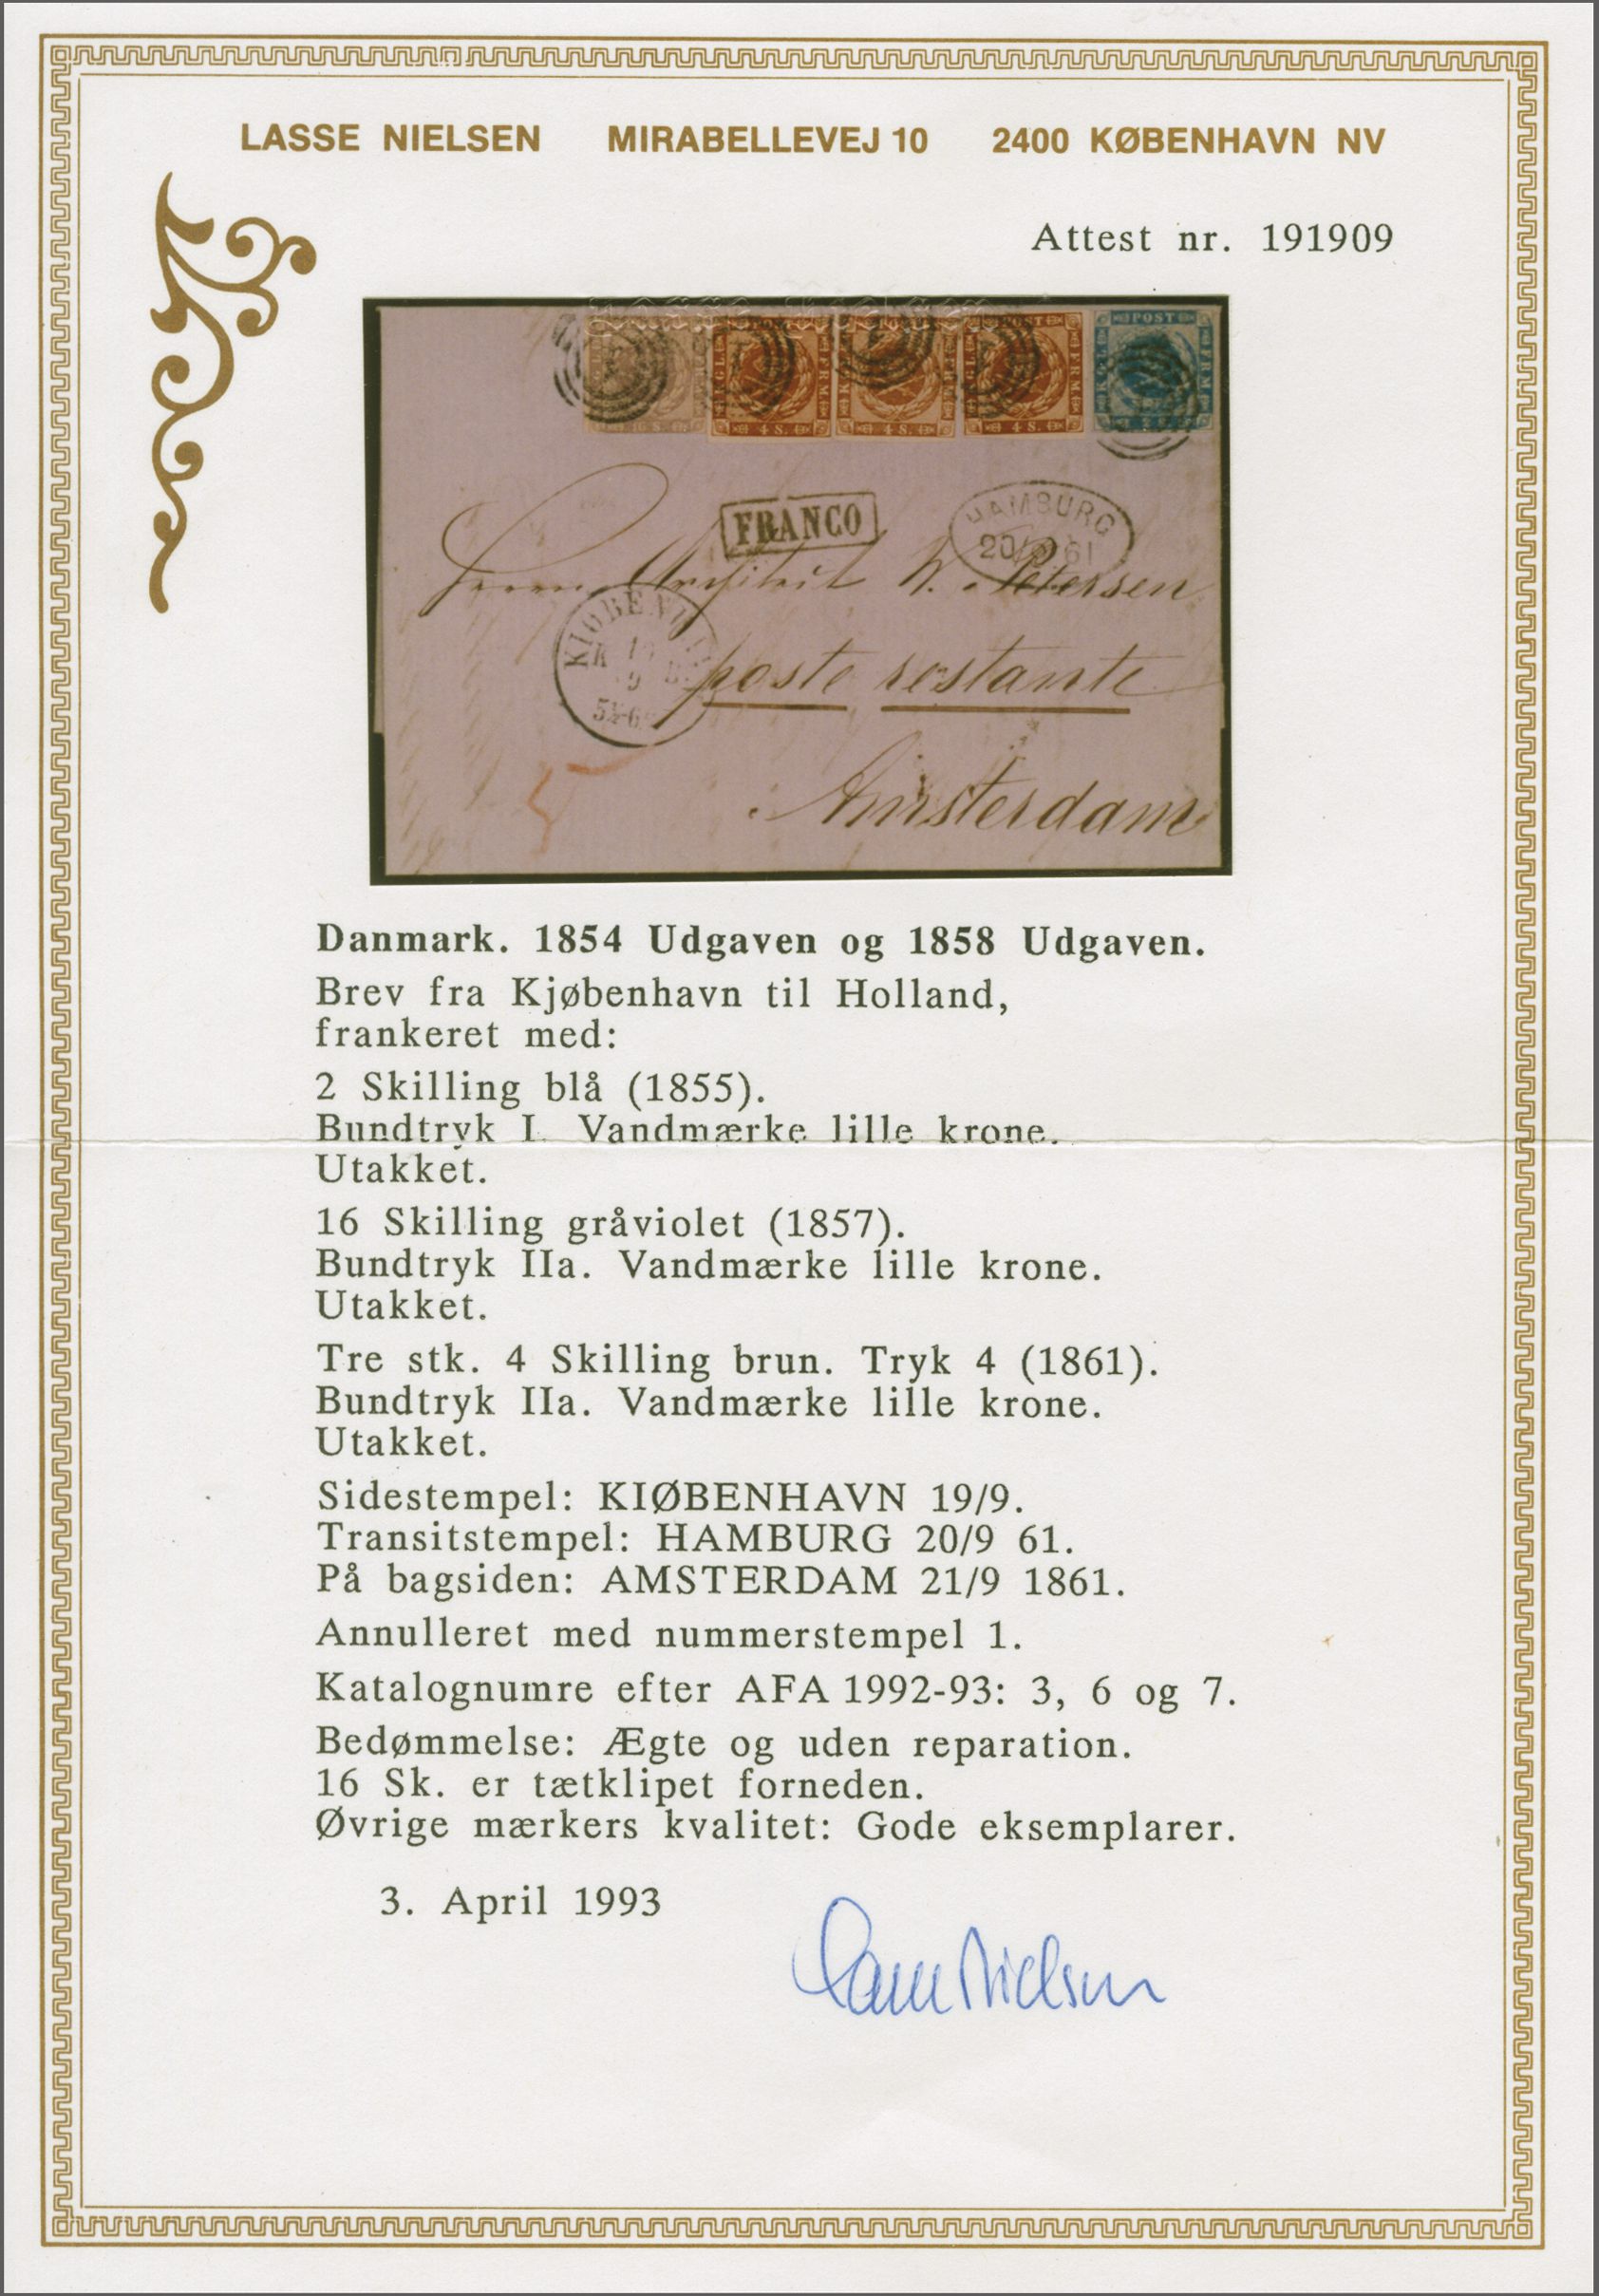 LASSE NIELSEN MIRABELLEVEJ 10 2400 KØBENHAVN NV
Attest nr. 191909
POST POST POST
KGL FRM KGL FRM KGL FRM
16 S. 4 S. 4 S. 4 S.
FRANCO
HAMBURG
20/9 61
Herrn Architect W. Petersen
KIØBENH
poste restante
Amsterdam
Danmark. 1854 Udgaven og 1858 Udgaven.
Brev fra Kjøbenhavn til Holland,
frankeret med:
2 Skilling blå (1855).
Bundtryk I. Vandmærke lille krone.
Utakket.
16 Skilling gråviolet (1857).
Bundtryk IIa. Vandmærke lille krone.
Utakket.
Tre stk. 4 Skilling brun. Tryk 4 (1861).
Bundtryk IIa. Vandmærke lille krone.
Utakket.
Sidestempel: KIØBENHAVN 19/9.
Transitstempel: HAMBURG 20/9 61.
På bagsiden: AMSTERDAM 21/9 1861.
Annulleret med nummerstempel 1.
Katalognumre efter AFA 1992-93: 3, 6 og 7.
Bedømmelse: Ægte og uden reparation.
16 Sk. er tætklipet forneden.
Øvrige mærkers kvalitet: Gode eksemplarer.
3. April 1993
Lasse Nielsen